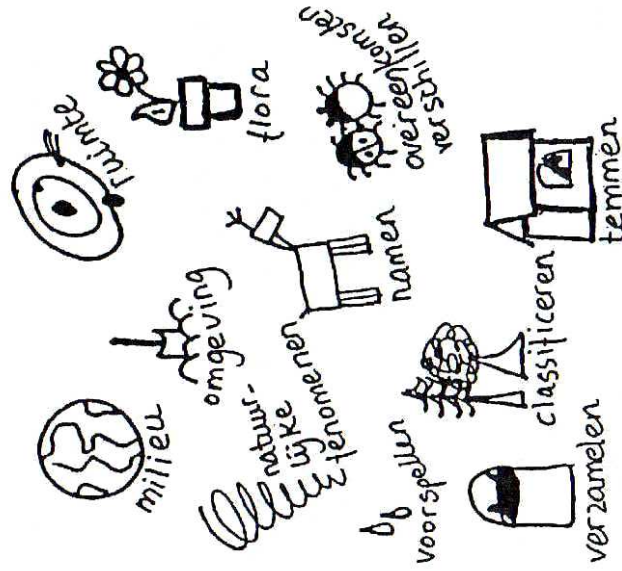 milieu
omgeving
ruimte
flora
natuur-
lijke
fenomenen
namen
overeenkomsten
verschillen
voorspellen
verzamelen
classificeren
temmen